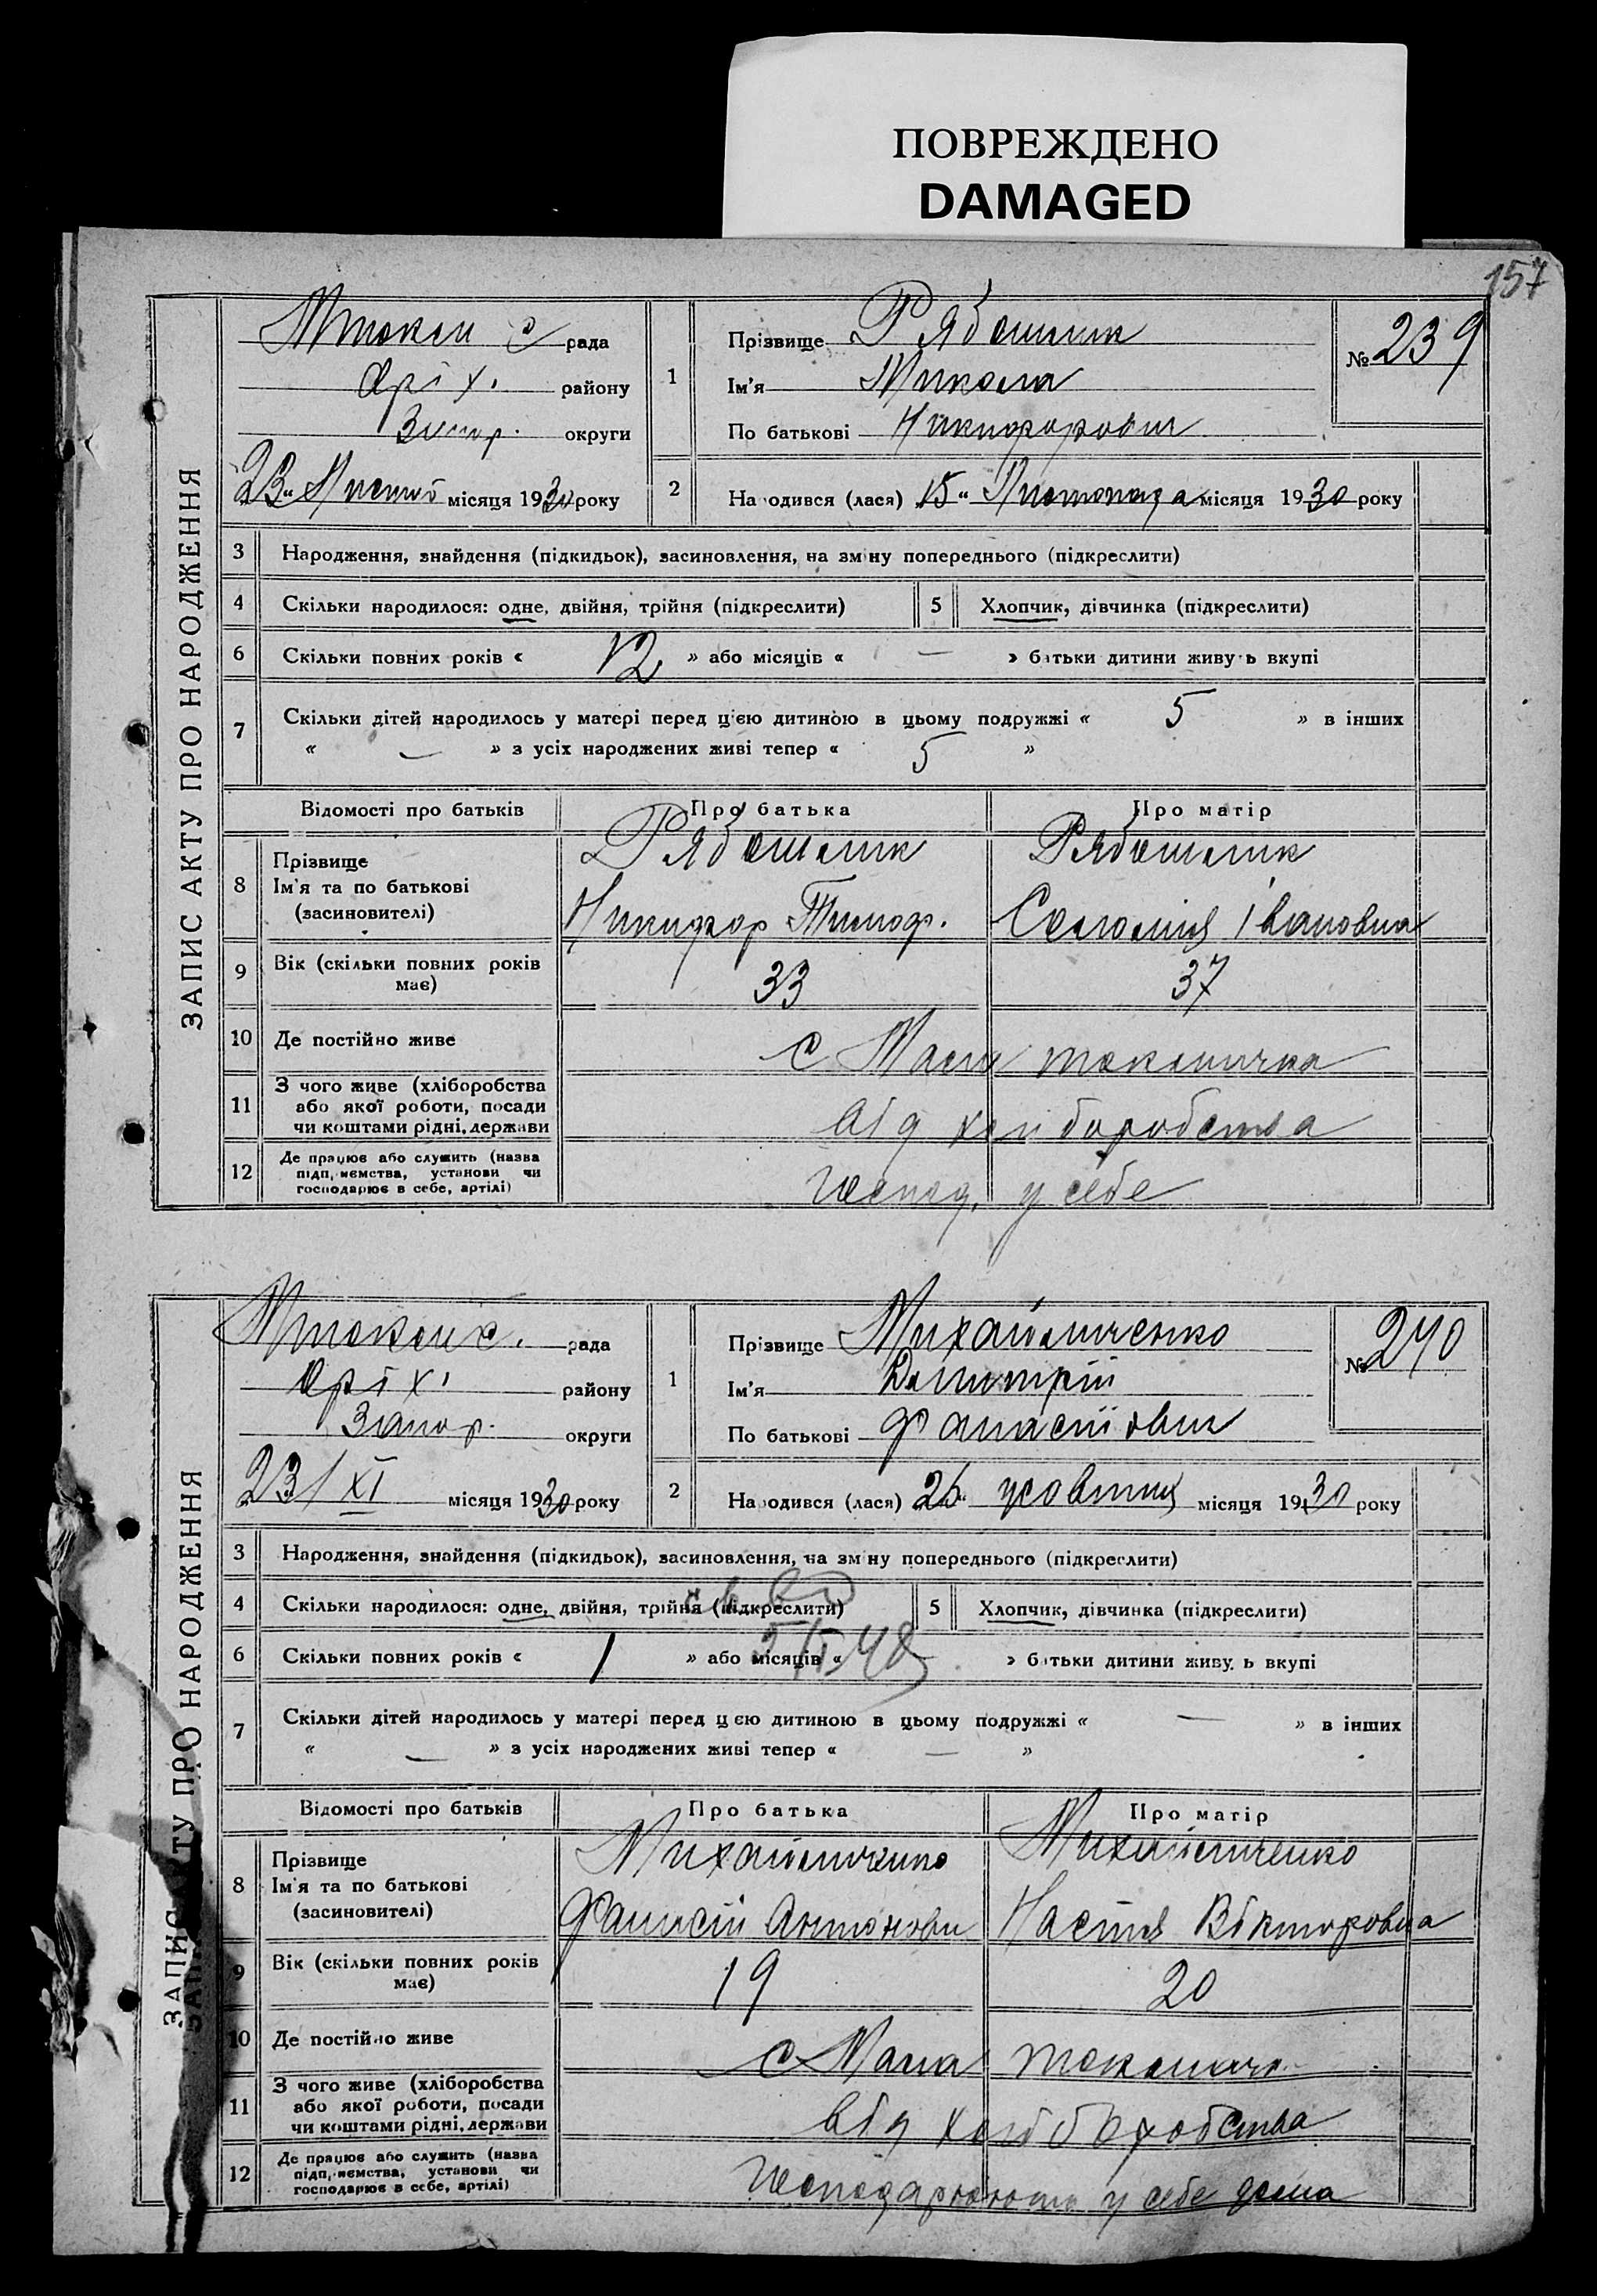 ПОВРЕЖДЕНО
DAMAGED
157
ЗАПИС АКТУ ПРО НАРОДЖЕННЯ
Мтокм с рада
Оріх. району
Запор. округи
23 " Листоп місяця 1930 року
1 Прізвище Рябошлик
Ім'я Микола
По батькові Никифорович
№ 239
2 Народився (лася) 15 " Листопада місяця 1930 року
3 Народження, знайдення (підкидьок), засиновлення, на зміну попереднього (підкреслити)
4 Скільки народилося: одне, двійня, трійня (підкреслити) 5 Хлопчик, дівчинка (підкреслити)
6 Скільки повних років « 12 » або місяців « — » батьки дитини живуть вкупі
7 Скільки дітей народилось у матері перед цією дитиною в цьому подружжі « 5 » в інших
« — » з усіх народжених живі тепер « 5 »
Відомості про батьків Про батька Про матір
8 Прізвище Рябошлик Рябошлик
Ім'я та по батькові
(засиновителі) Никифор Тимоф. Соломія Івановна
9 Вік (скільки повних років
має) 33 37
10 Де постійно живе с Мала токмачка
11 З чого живе (хліборобства
або якої роботи, посади
чи коштами рідні, держави від хліборобства
12 Де працює або служить (назва
підприємства, установи чи
господарює в себе, артілі) Господ. у себе
ЗАПИС АКТУ ПРО НАРОДЖЕННЯ
Мтокм с. рада
Оріх. району
Запор. округи
23/XI місяця 1930 року
1 Прізвище Михайличенко
Ім'я Дмитрій
По батькові Фанасійович
№ 240
2 Народився (лася) 25 " жовтня місяця 1930 року
3 Народження, знайдення (підкидьок), засиновлення, на зміну попереднього (підкреслити)
4 Скільки народилося: одне, двійня, трійня (підкреслити) 5 Хлопчик, дівчинка (підкреслити)
6 Скільки повних років « 1 » або місяців « » батьки дитини живуть вкупі
7 Скільки дітей народилось у матері перед цією дитиною в цьому подружжі « — » в інших
« — » з усіх народжених живі тепер « — »
Відомості про батьків Про батька Про матір
8 Прізвище Михайличенко Михайличенко
Ім'я та по батькові
(засиновителі) Фанасій Антонович Настя Вікторовна
9 Вік (скільки повних років
має) 19 20
10 Де постійно живе с Мала токмачк
11 З чого живе (хліборобства
або якої роботи, посади
чи коштами рідні, держави від хліборобства
12 Де працює або служить (назва
підприємства, установи чи
господарює в себе, артілі) Господарюють у себе дома